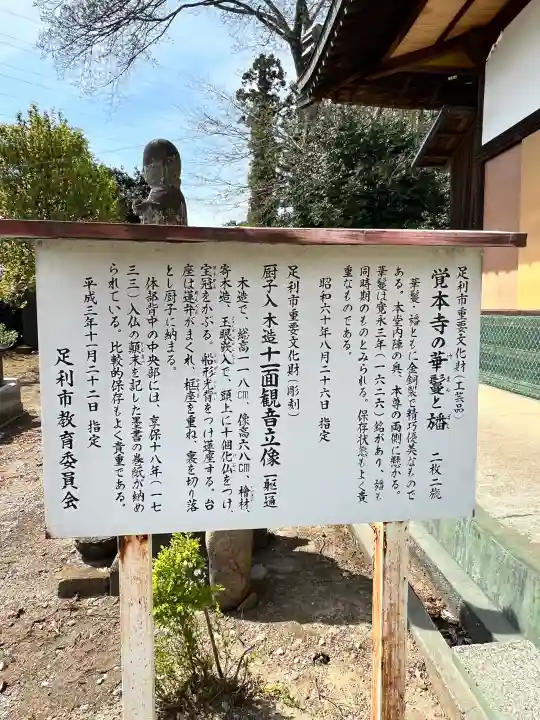 足利市重要文化財(工芸品)
覚本寺の華鬘と幡 二枚二旒
華鬘・幡ともに金銅製で精巧優美なもので
ある。本堂内陣の具、本尊の両側に懸かる。
華鬘は寛永三年(一六二六)銘があり、幡も
同時期のものとみられる。保存状態もよく貴
重なものである。
昭和六十年八月二十六日 指定
足利市重要文化財(彫刻)
厨子入 木造十一面観音立像 一躯一通
木造で、総高一一八㎝、像高六八㎝、檜材、
寄木造、玉眼嵌入で、頭上に十個化仏をつけ、
宝冠をかぶる。船形光背をつけ蓮座する。台
座は蓮弁がまくれ、框座を重ね、裏を切り落
とし厨子に納まる。
体部背中の中央部には、享保十八年(一七
三三)入仏の顛末を記した墨書の巻紙が納め
られている。比較的保存もよく貴重である。
平成三年十一月二十二日 指定
足利市教育委員会